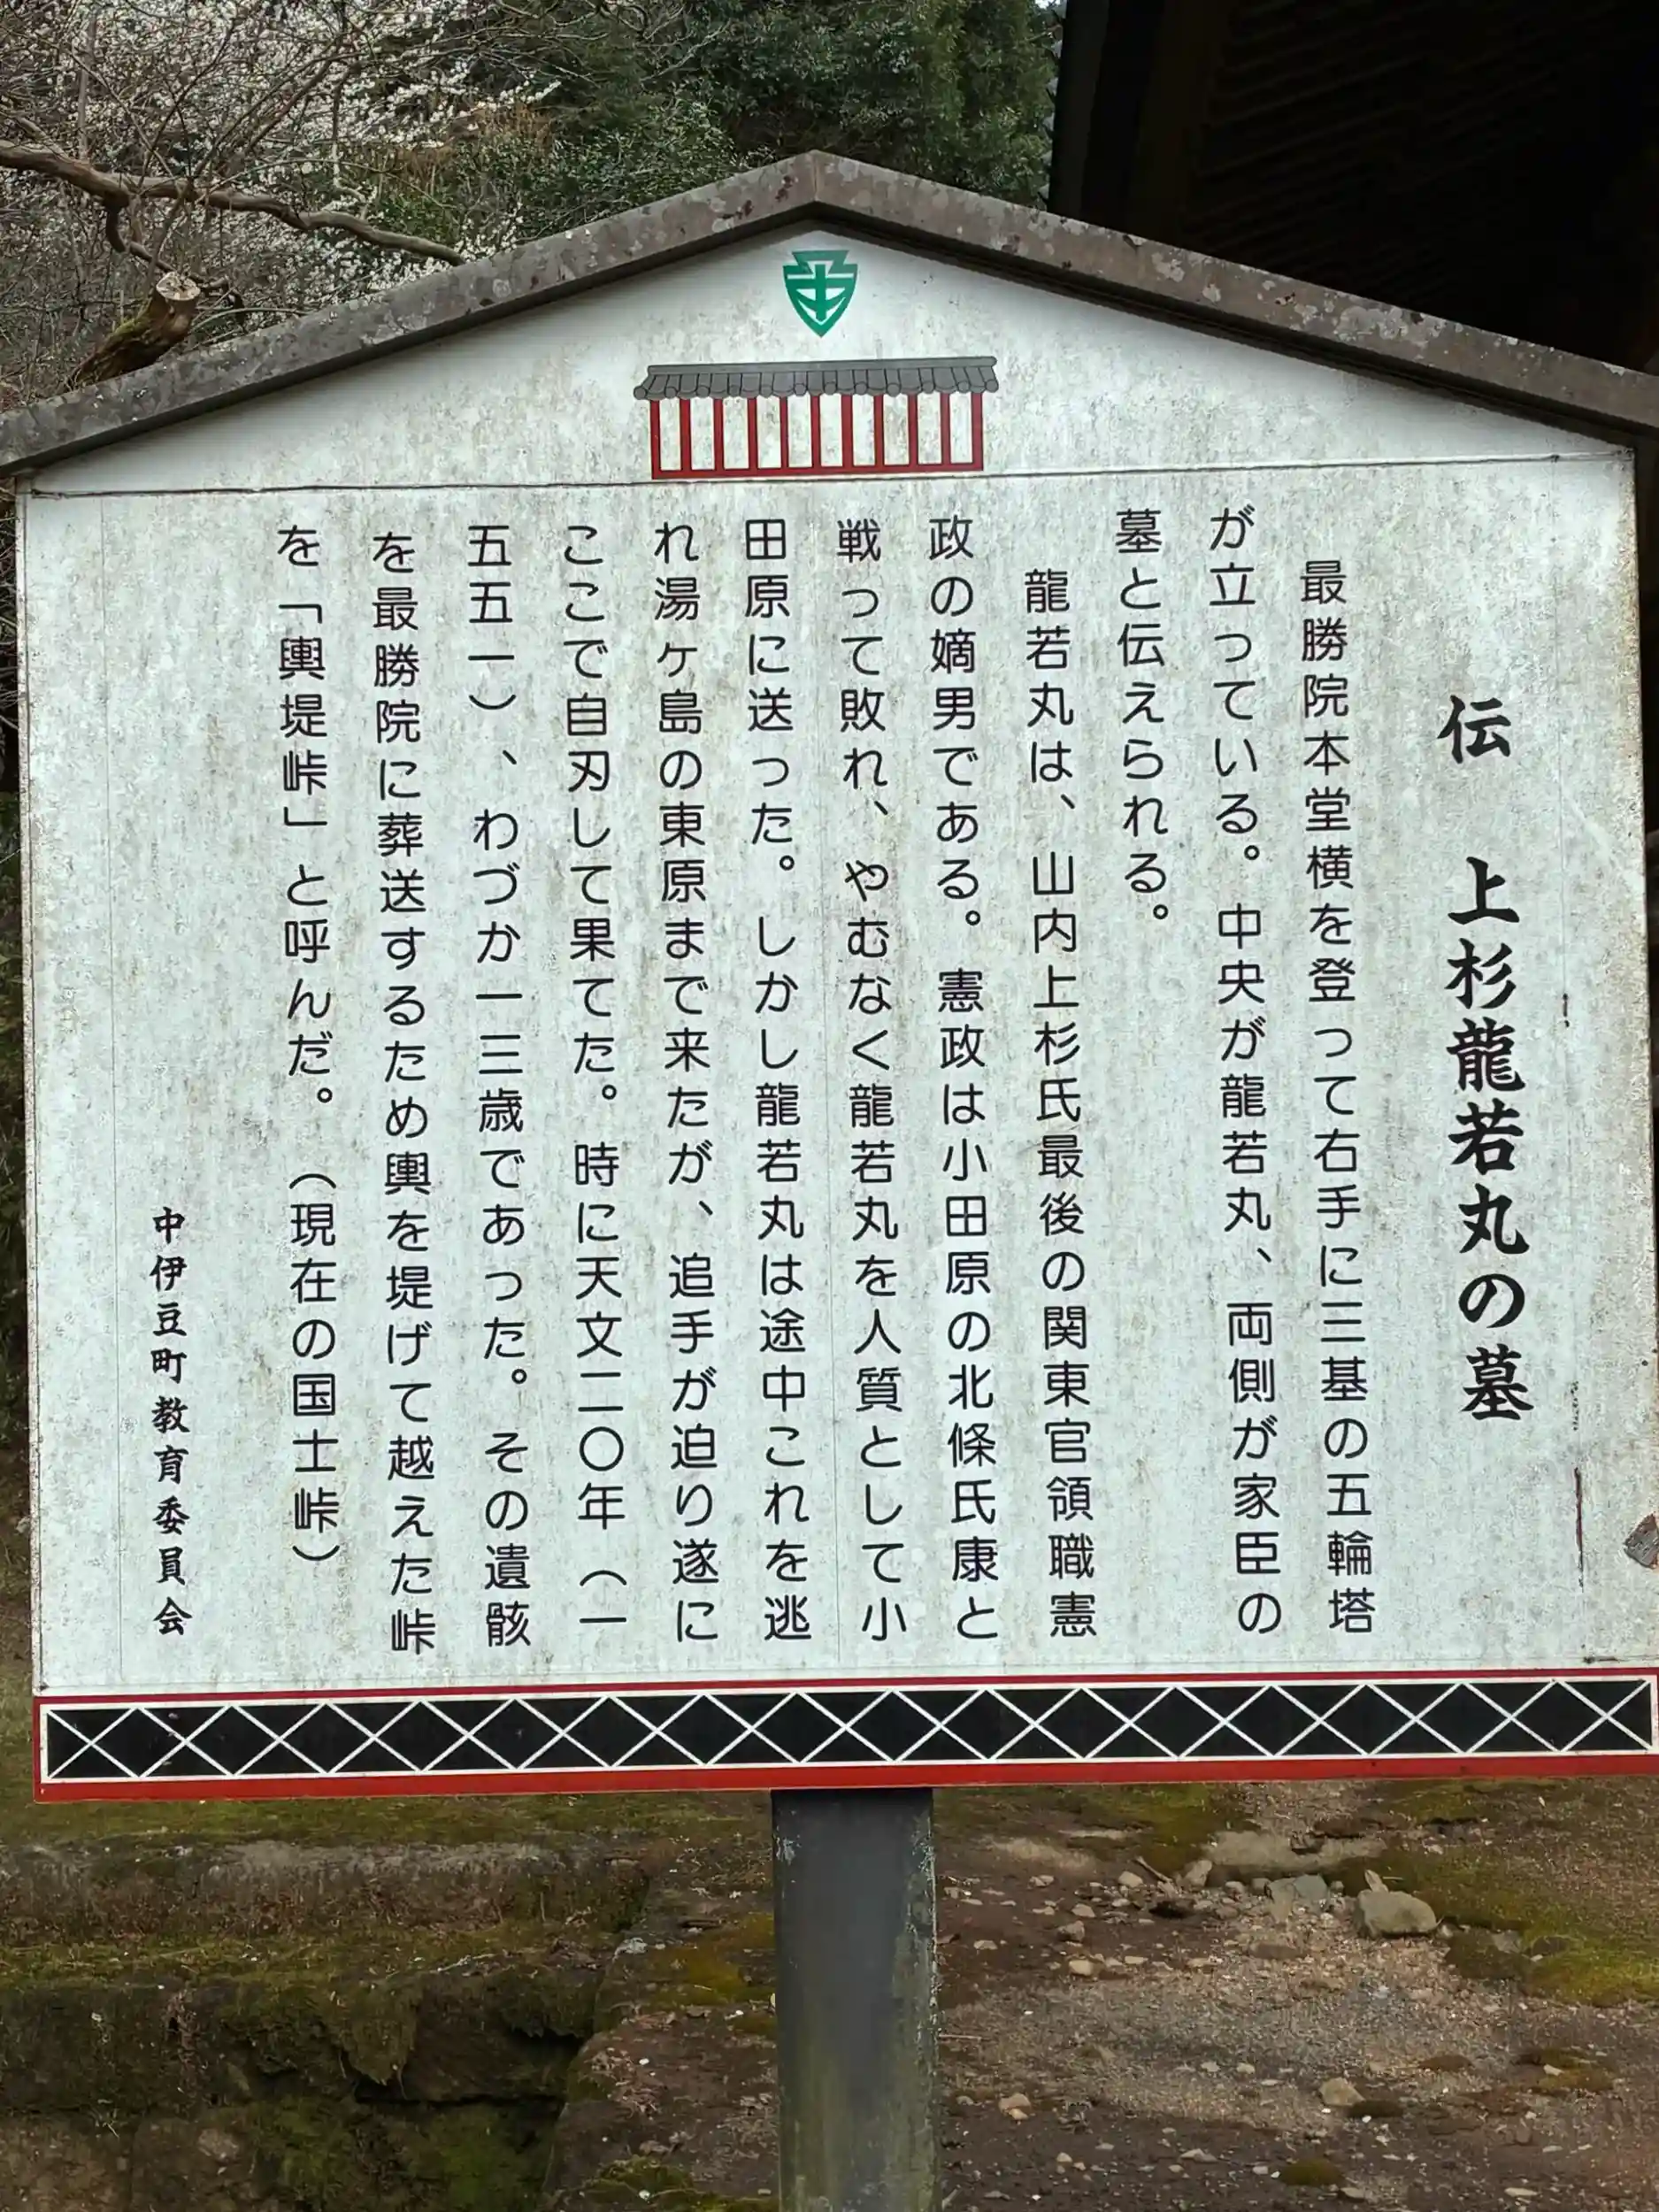 伝　上杉龍若丸の墓
最勝院本堂横を登って右手に三基の五輪塔
が立っている。中央が龍若丸、両側が家臣の
墓と伝えられる。
龍若丸は、山内上杉氏最後の関東官領職憲
政の嫡男である。憲政は小田原の北條氏康と
戦って敗れ、やむなく龍若丸を人質として小
田原に送った。しかし龍若丸は途中これを逃
れ湯ヶ島の東原まで来たが、追手が迫り遂に
ここで自刃して果てた。時に天文二〇年（一
五五一）、わづか一三歳であった。その遺骸
を最勝院に葬送するため輿を堤げて越えた峠
を「輿堤峠」と呼んだ。（現在の国士峠）
中伊豆町教育委員会